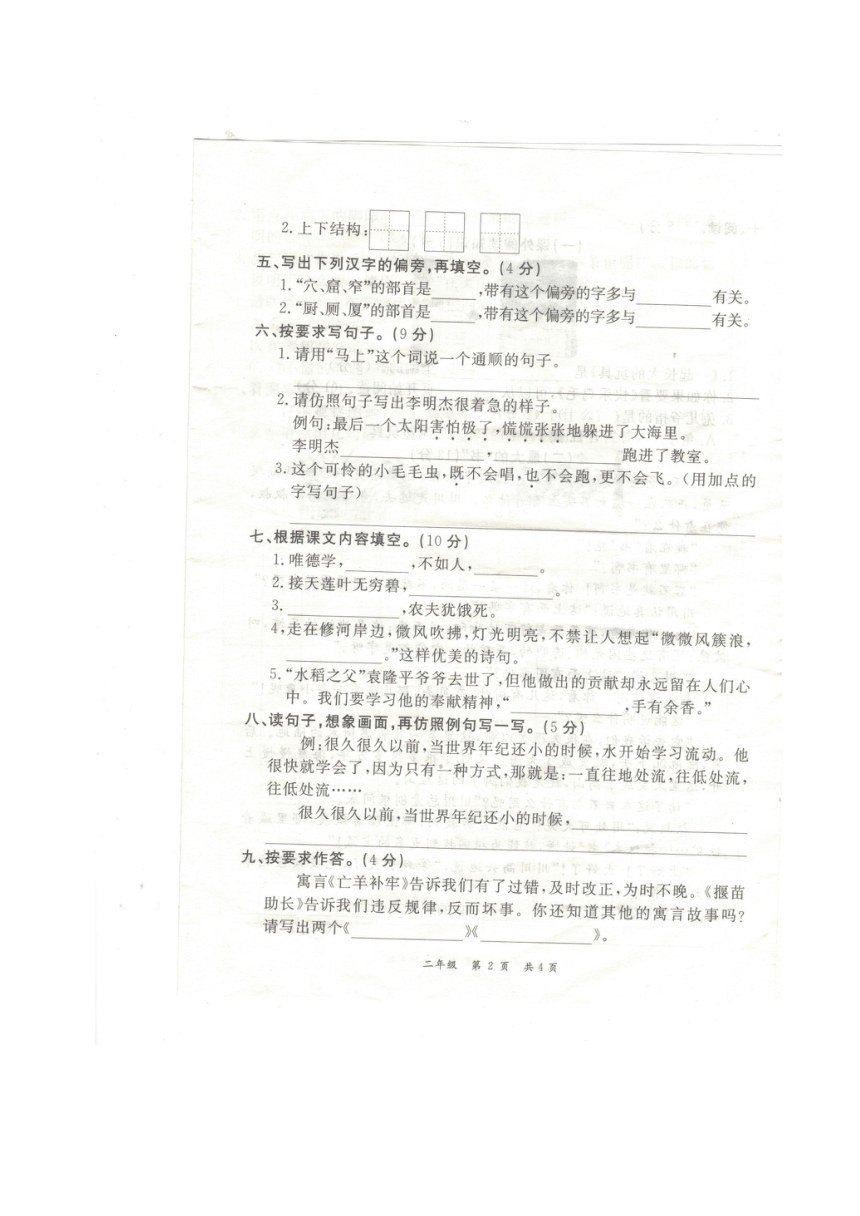 2.上下结构:
五、写出下列汉字的偏旁,再填空。(4分)
1.“穴、窟、窄”的部首是____,带有这个偏旁的字多与________有关。
2.“厨、厕、厦”的部首是____,带有这个偏旁的字多与________有关。
六、按要求写句子。(9分)
1.请用“马上”这个词说一个通顺的句子。
2.请仿照句子写出李明杰很着急的样子。
例句:最后一个太阳害怕极了,慌慌张张地躲进了大海里。
李明杰____________,____________跑进了教室。
3.这个可怜的小毛毛虫,既不会唱,也不会跑,更不会飞。(用加点的
字写句子)
七、根据课文内容填空。(10分)
1.唯德学,______,不如人,______。
2.接天莲叶无穷碧,____________。
3.__________,农夫犹饿死。
4,走在修河岸边,微风吹拂,灯光明亮,不禁让人想起“微微风簇浪,
________。”这样优美的诗句。
5.“水稻之父”袁隆平爷爷去世了,但他做出的贡献却永远留在人们心
中。我们要学习他的奉献精神,“__________,手有余香。”
八、读句子,想象画面,再仿照例句写一写。(5分)
例:很久很久以前,当世界年纪还小的时候,水开始学习流动。他
很快就学会了,因为只有一种方式,那就是:一直往地处流,往低处流,
往低处流……
很久很久以前,当世界年纪还小的时候,____________
九、按要求作答。(4分)
寓言《亡羊补牢》告诉我们有了过错,及时改正,为时不晚。《揠苗
助长》告诉我们违反规律,反而坏事。你还知道其他的寓言故事吗?
请写出两个《__________》《__________》。
二年级 第2页 共4页